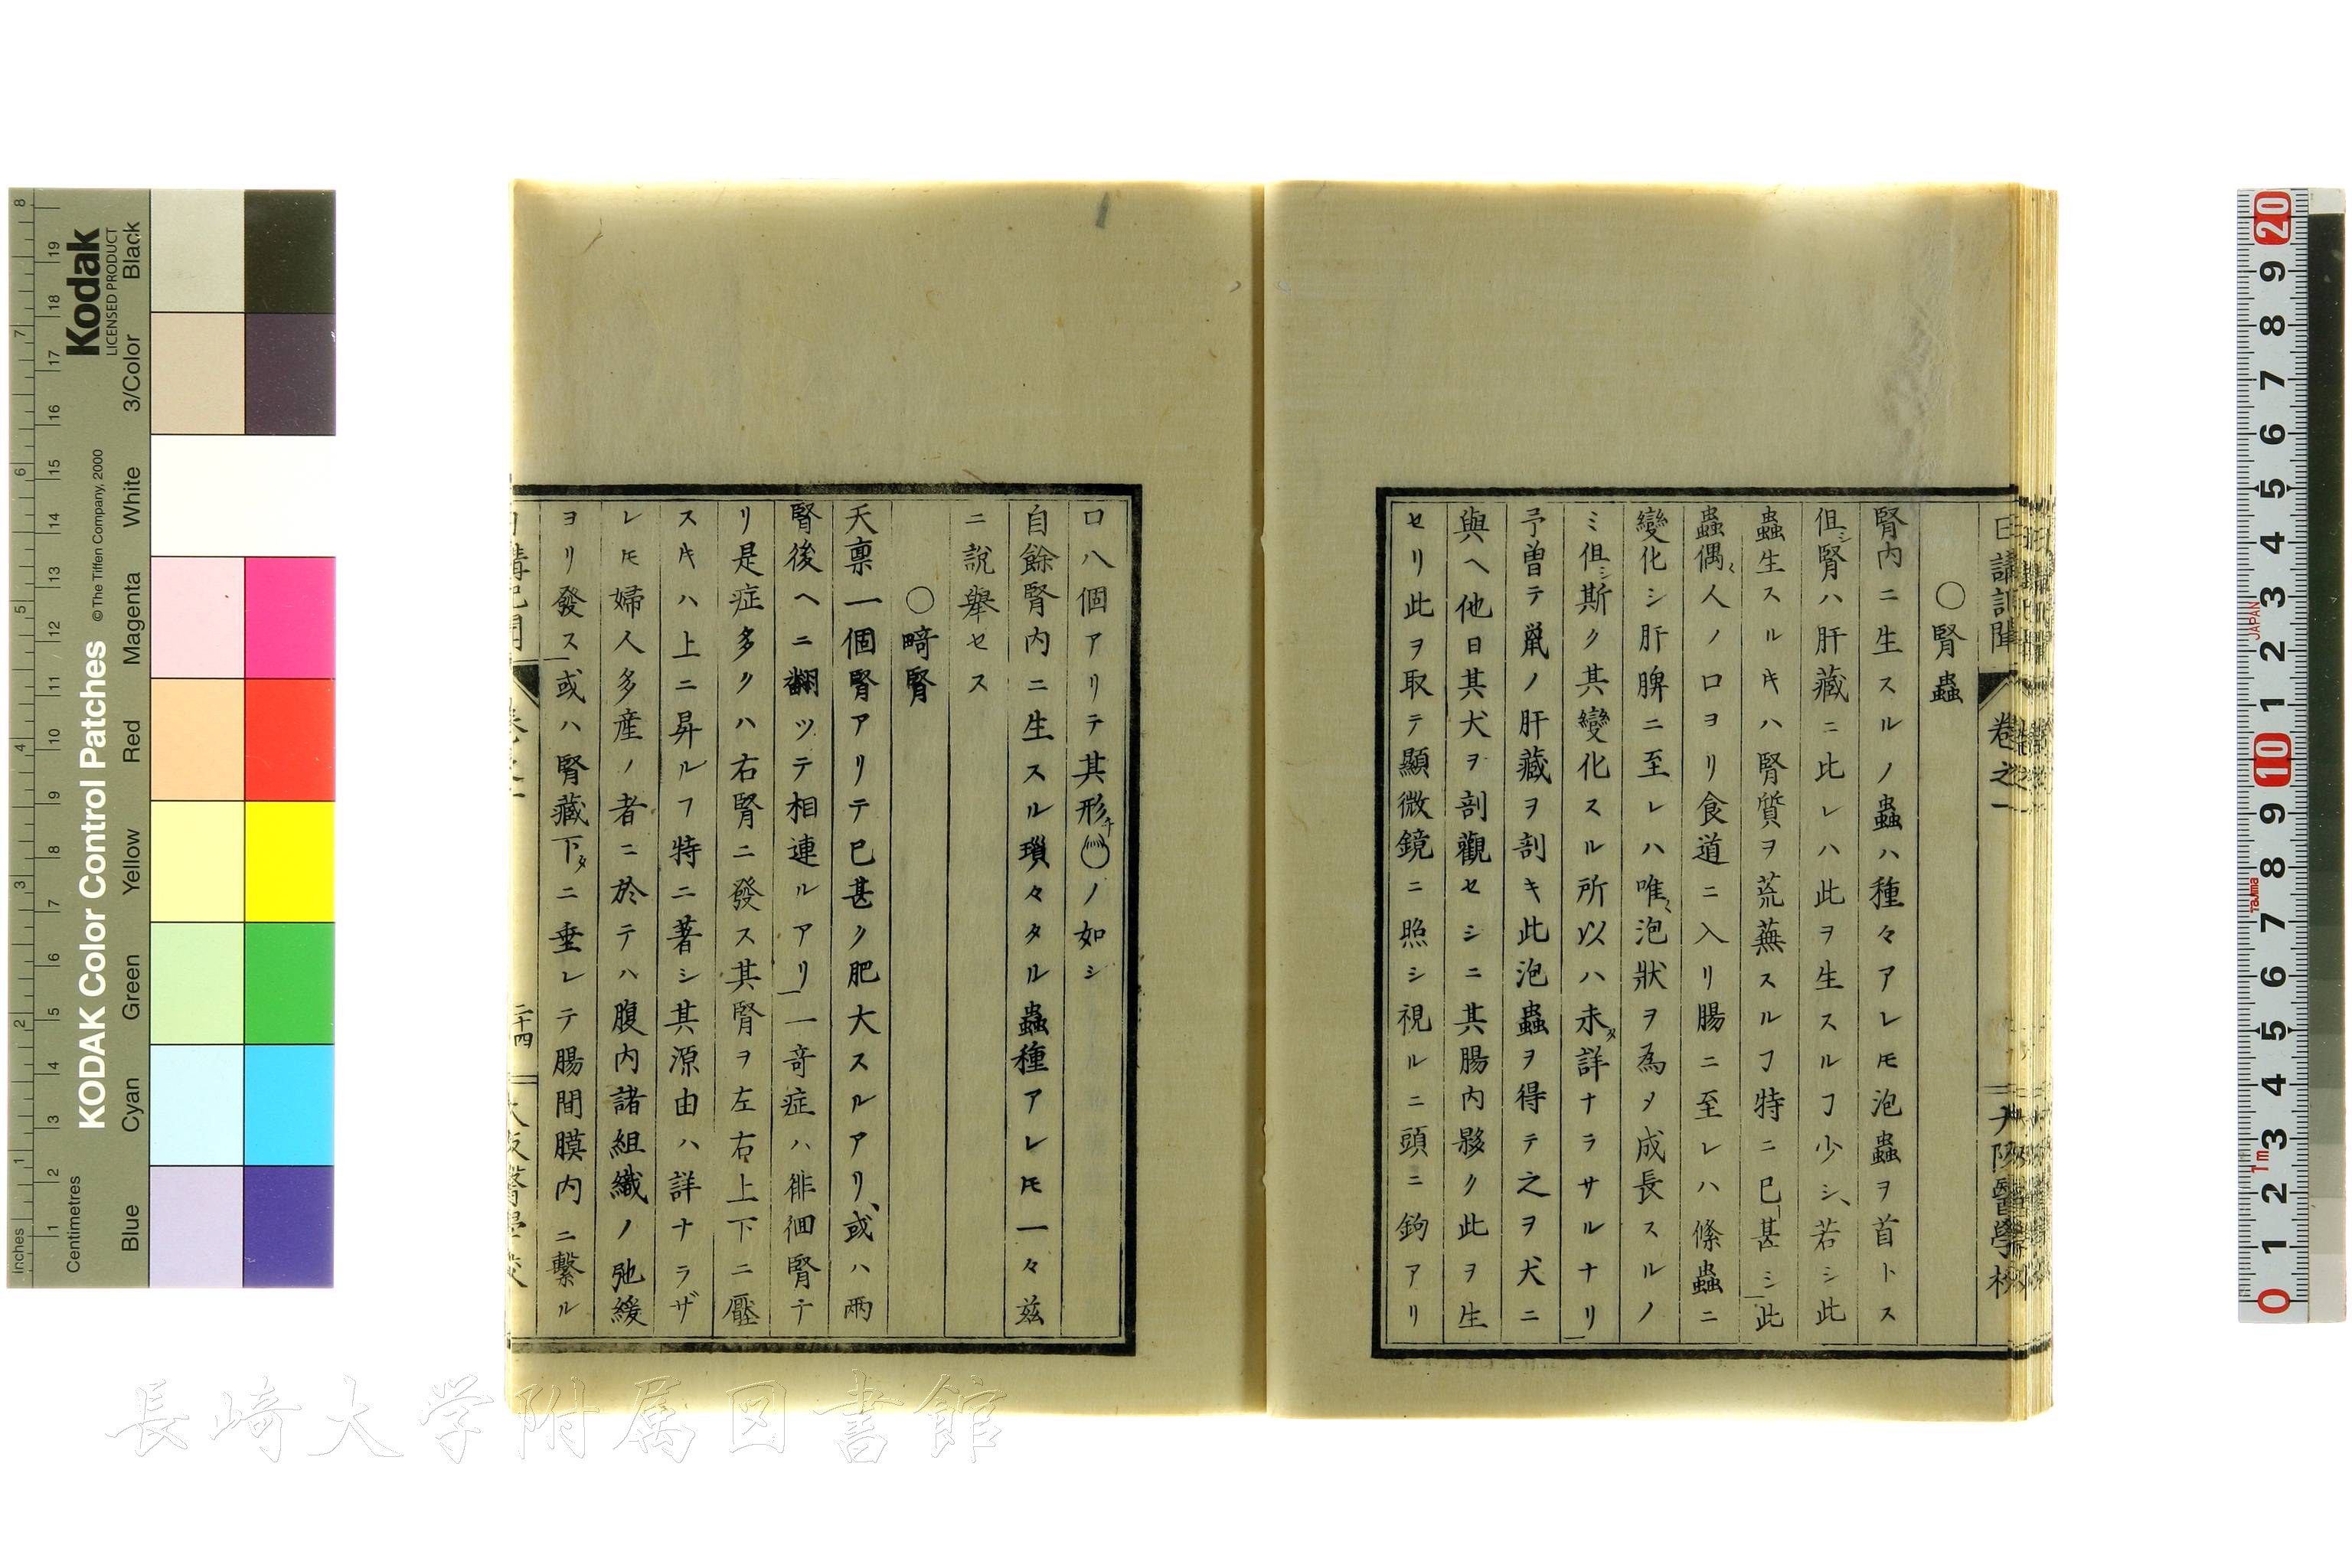 日講記聞 卷之一 大阪醫學校
○腎蟲
腎内ニ生スルノ蟲ハ種々アレㇳモ泡蟲ヲ首トス
但シ腎ハ肝藏ニ比レハ此ヲ生スルヿ少シ、若シ此
蟲生スルキハ腎質ヲ荒蕪スルヿ特ニ已甚シ此
蟲偶〻人ノ口ヨリ食道ニ入リ腸ニ至レハ條蟲ニ
變化シ肝脾ニ至レハ唯〻泡狀ヲ為メ成長スルノ
ミ但シ斯ク其變化スル所以ハ未タ詳ナラサルナリ
予曽テ鼠ノ肝藏ヲ剖キ此泡蟲ヲ得テ之ヲ犬ニ
與ヘ他日其犬ヲ剖觀セシニ其腸内夥ク此ヲ生
セリ此ヲ取テ顯微鏡ニ照シ視ルニ頭ニ鉤アリ
口八個アリテ其形チノ如シ
自餘腎内ニ生スル瑣々タル蟲種アレㇳモ一々茲
ニ說舉セス
○畸腎
天禀一個腎アリテ已甚ク肥大スルアリ、或ハ兩
腎後ヘニ翻ツテ相連ルアリ一竒症ハ徘徊腎テ
リ是症多クハ右腎ニ發ス其腎ヲ左右上下ニ壓
スキハ上ニ昇ルヿ特ニ著シ其源由ハ詳ナラザ
レㇳモ婦人多産ノ者ニ於テハ腹内諸組織ノ弛緩
ヨリ發ス或ハ腎藏下タニ垂レテ腸間膜内ニ繫ル
日講記聞 卷之一 二十四 大阪醫學校
KODAK Color Control Patches
© The Tiffen Company, 2000
Kodak
LICENSED PRODUCT
Inches
Centimetres
Blue Cyan Green Yellow Red Magenta White 3/Color Black
JAPAN
Tajima
1m
0 1 2 3 4 5 6 7 8 9 10 1 2 3 4 5 6 7 8 9 20
長崎大学附属図書館